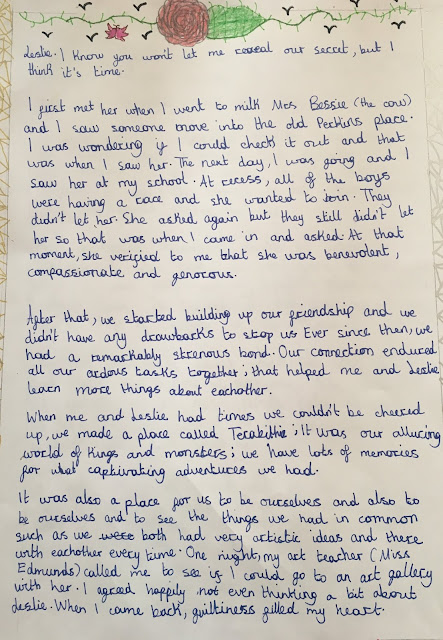 Leslie. I know you won't let me reveal our secret, but I
think it's time.
I first met her when I went to milk Mrs Bessie (the cow)
and I saw someone move into the old Perkins place.
I was wondering if I could check it out and that
was when I saw her. The next day, I was going and I
saw her at my school. At recess, all of the boys
were having a race and she wanted to join. They
didn't let her. She asked again but they still didn't let
her so that was when I came in and asked. At that
moment, she verified to me that she was benevolent,
compassionate and genorous.
After that, we started building up our friendship and we
didn't have any drawbacks to stop us Ever since then, we
had a remarkably strenous bond. Our connection endured
all our ardous tasks together; that helped me and Leslie
learn more things about eachother.
When me and Leslie had times we couldn't be cheered
up, we made a place called Terabithia; It was our alluring
world of Kings and monsters; we have lots of memories
for what captivating adventures we had.
It was also a place for us to be ourselves and also to
be ourselves and to see the things we had in common
such as we were both had very artistic ideas and there
with eachother every time. One night, my art teacher (Miss
Edmunds) called me to see if I could go to an art gallery
with her. I agreed happily not even thinking a bit about
Leslie. When I came back, guiltiness filled my heart.